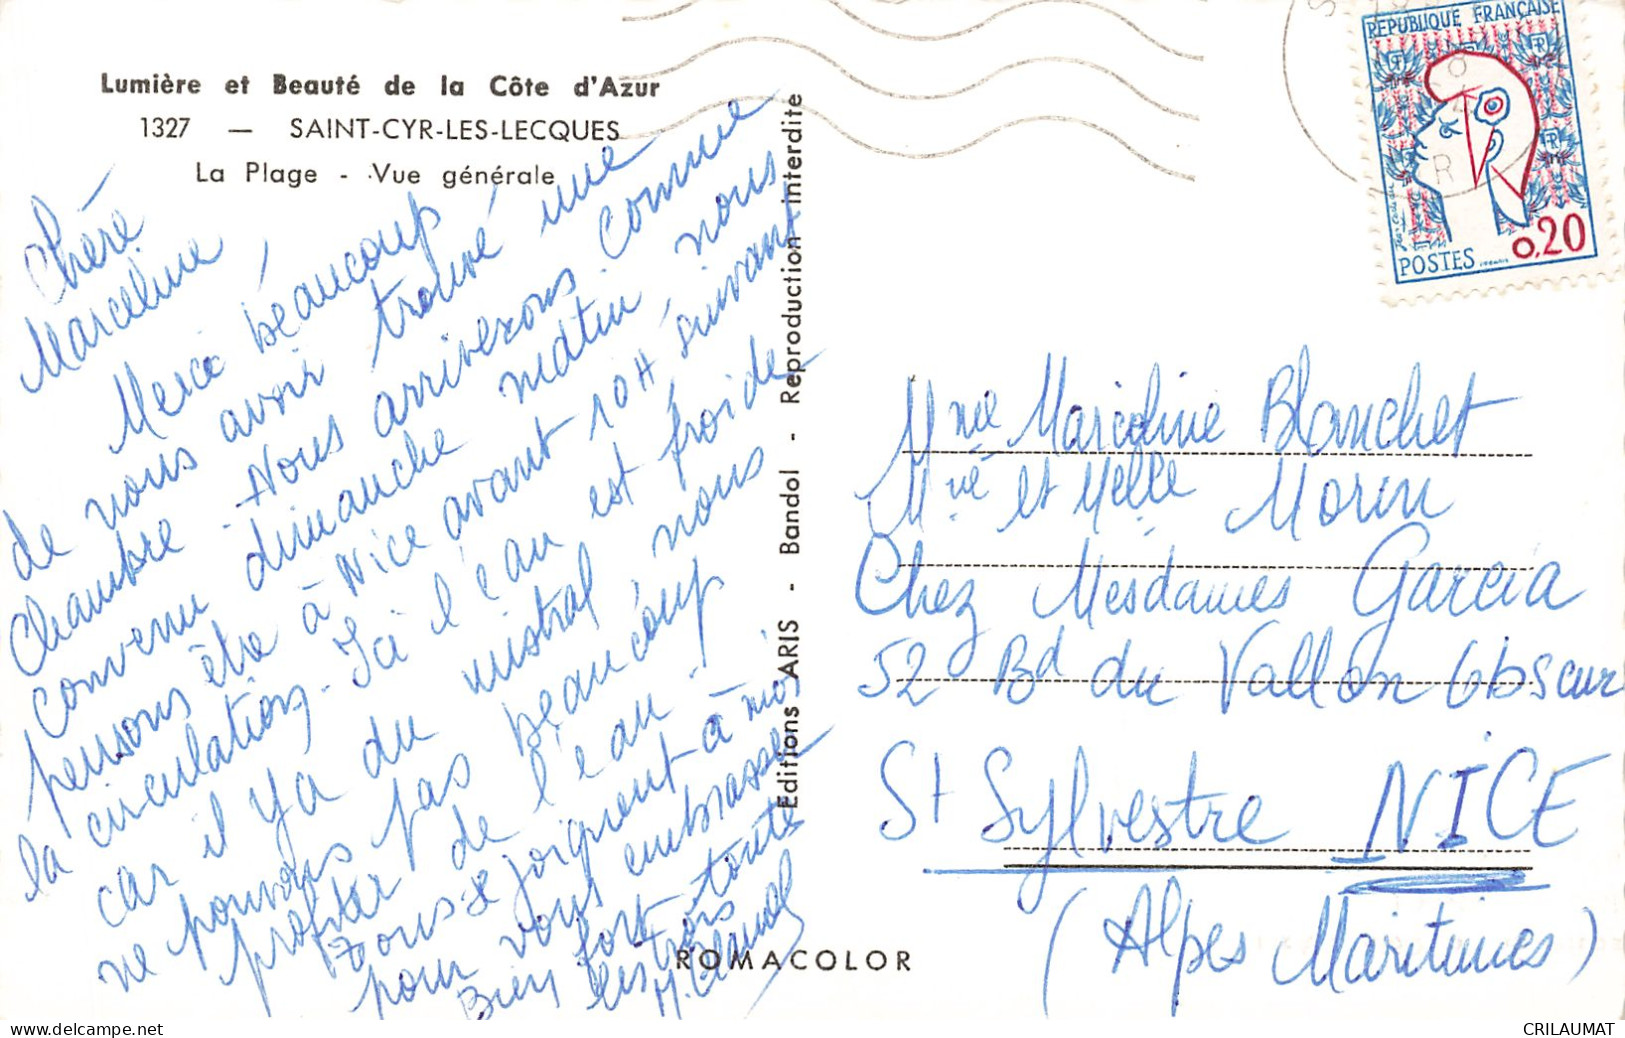 Lumière et Beauté de la Côte d'Azur
1327 — SAINT-CYR-LES-LECQUES
La Plage - Vue générale
Chère
Marceline,
Merci beaucoup
de nous avoir trouvé une
chambre. Nous arriverons comme
convenu dimanche matin, nous
pensons être à Nice avant 10H suivant
la circulation. Ici l'eau est froide
car il y a du mistral nous
ne pouvons pas beaucoup
profiter de l'eau.
Tous se joignent à moi
pour vous embrasser
Bien fort toutes
les trois
Editions ARIS - Bandol - Reproduction interdite
ROMACOLOR
REPUBLIQUE FRANÇAISE
0,20
POSTES
Mme Marceline Blanchet
Mme et Melle Morin
Chez Mesdames Garcia
52 Bd du Vallon Obscur
St Sylvestre NICE
(Alpes Maritimes)
CRILAUMAT
www.delcampe.net